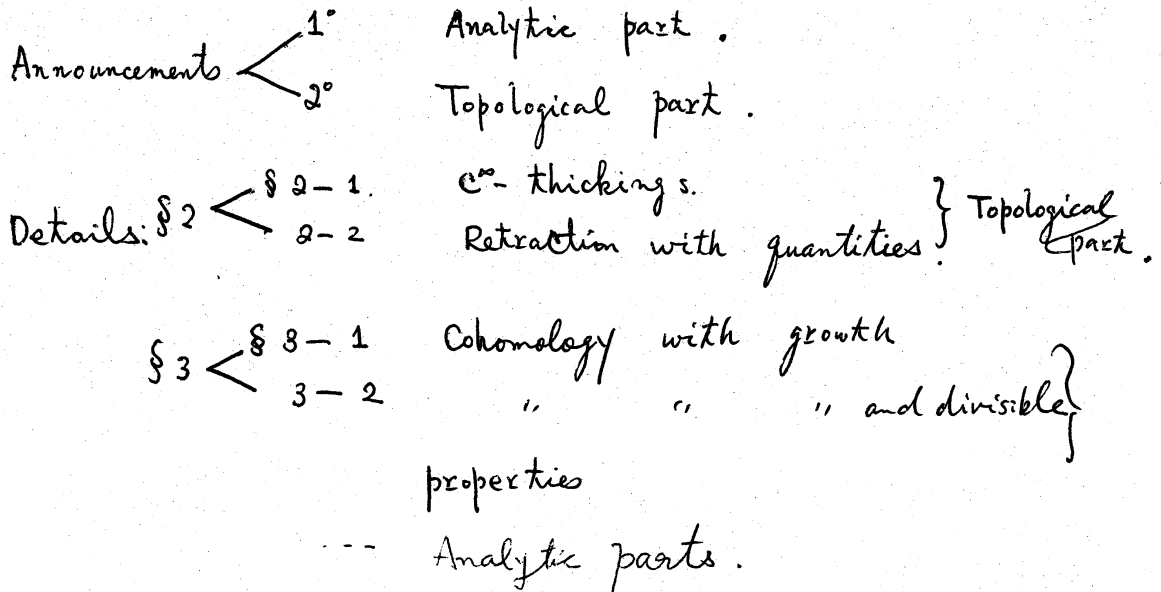 Announcements 1° Analytic part.
2° Topological part.
Details: § 2 § 2-1. C∞- thickings. } Topological part.
2-2 Retraction with quantities.
§ 3 § 3-1 Cohomology with growth }
3-2 " " " and divisible
properties
--- Analytic parts.